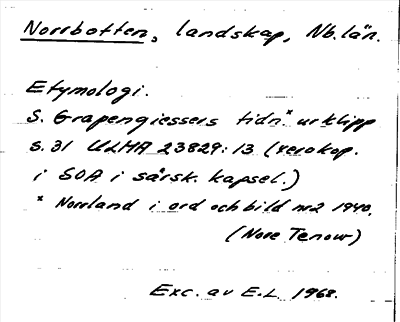 Norrbotten, landskap, Nb. län.
Etymologi.
S. Grapengiessers tidn.* urklipp
s. 31 ULMA 23829:13 (xerokop.
i SOA i särsk. kapsel.)
* Norrland i ord och bild nr 2 1940.
(Nore Tenow)
Exc. av E.L. 1968.